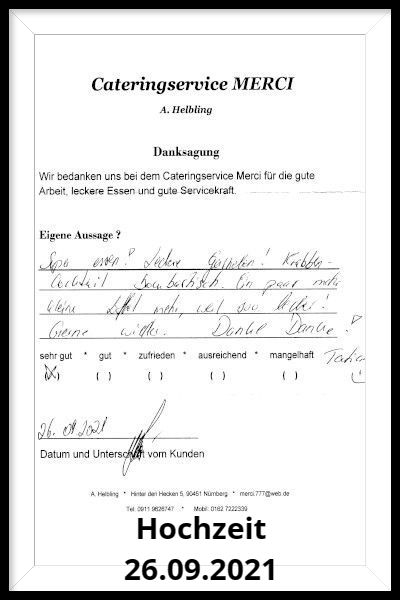 Cateringservice MERCI
A. Helbling
Danksagung
Wir bedanken uns bei dem Cateringservice Merci für die gute
Arbeit, leckere Essen und gute Servicekraft.
Eigene Aussage ?
Supa essen! Leckere Garnelen! Krabben-
Cocktail Bombastisch. Ein paar mehr
kleine Löffel mehr, weil soo lecker!
Gerne wieder. Danke Danke!
sehr gut * gut * zufrieden * ausreichend * mangelhaft
(X) ( ) ( ) ( ) ( )
26. 09 2021
Datum und Unterschrift vom Kunden
A. Helbling * Hinter den Hecken 5, 90451 Nürnberg * merci.777@web.de
Tel: 0911 9626747 * Mobil: 0162 7222339
Hochzeit
26.09.2021